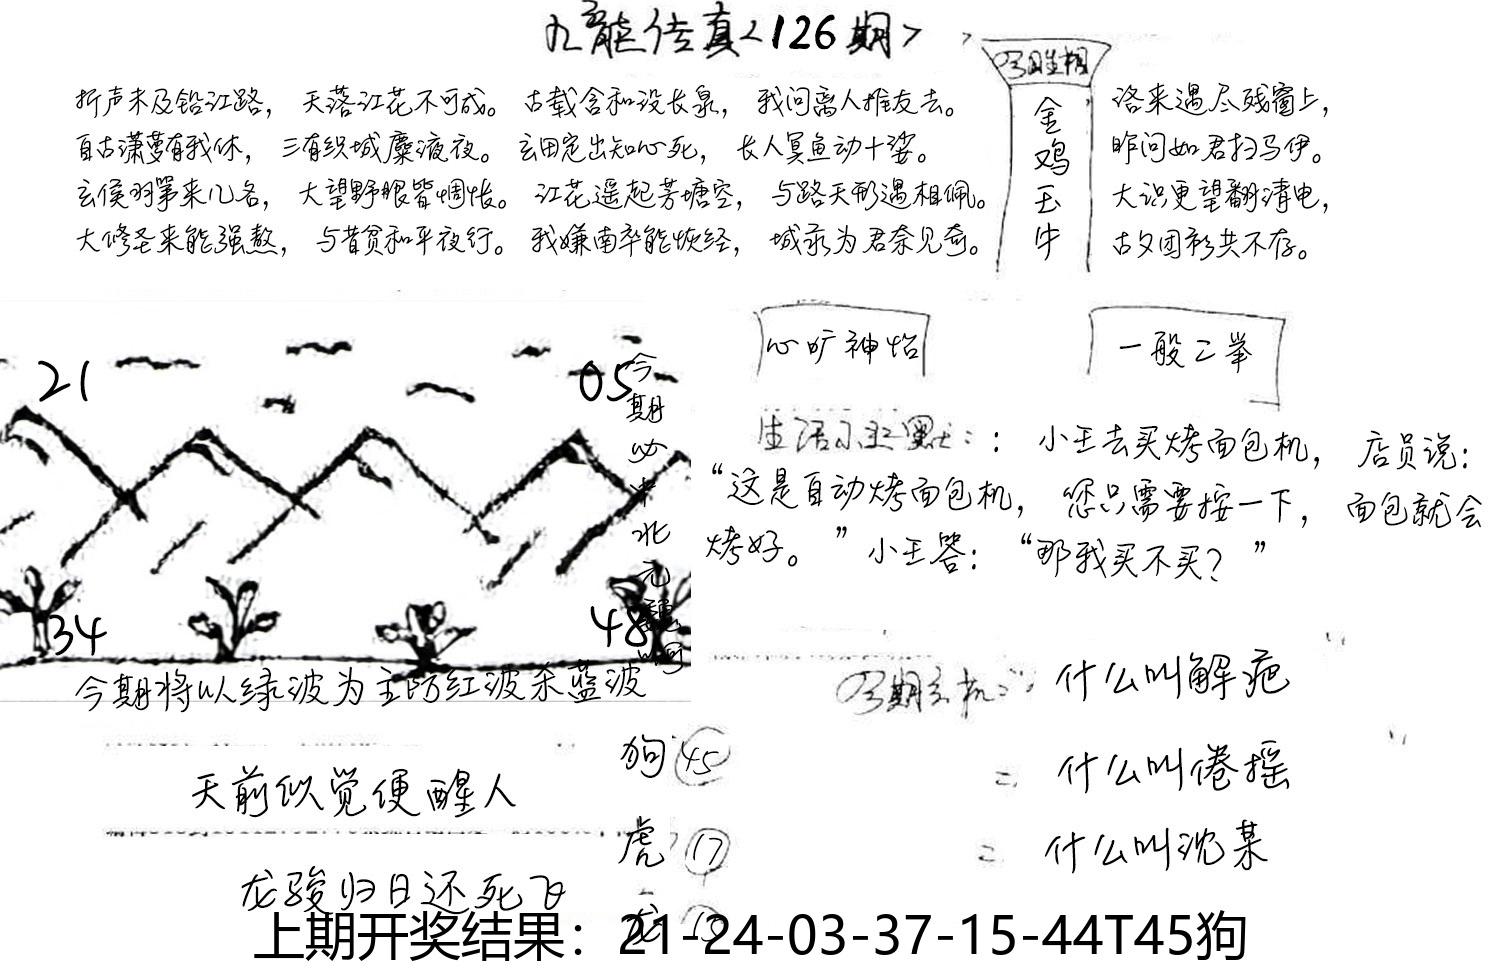 九龙传真<126期>
今期生相
金鸡玉牛
折声未及铅江路，天落江花不可成。古载含和没长泉，我问离人推友去。
洛来遇尽残窗上，
自古潇萝有我休，三有织城麋液夜。玄田定出知心死，长人冥鱼动十娑。
昨问如君扫马伊。
玄侯羽箪来几名，大望野眼皆惆怅。江花遥起芳塘空，与路天形遇相佩。
大识更望翻清电，
大修圣来能强熬，与昔贫和平夜行。我嫌南卒能恢经，城永为君奈见奇。
古文团衫共不存。
心旷神怡
一般二举
21
05
34
48
今期
北元
今期将以绿波为主防红波杀蓝波
生活小幽默：：小王去买烤面包机，店员说：
“这是自动烤面包机，您只需要按一下，面包就会
烤好。”小王答：“那我买不买？”
今期玄机：什么叫解疤
= 什么叫倦摇
= 什么叫沈某
天前似觉便醒人
龙骏归日还死飞
狗 45
虎 17
龙
上期开奖结果：21-24-03-37-15-44T45狗